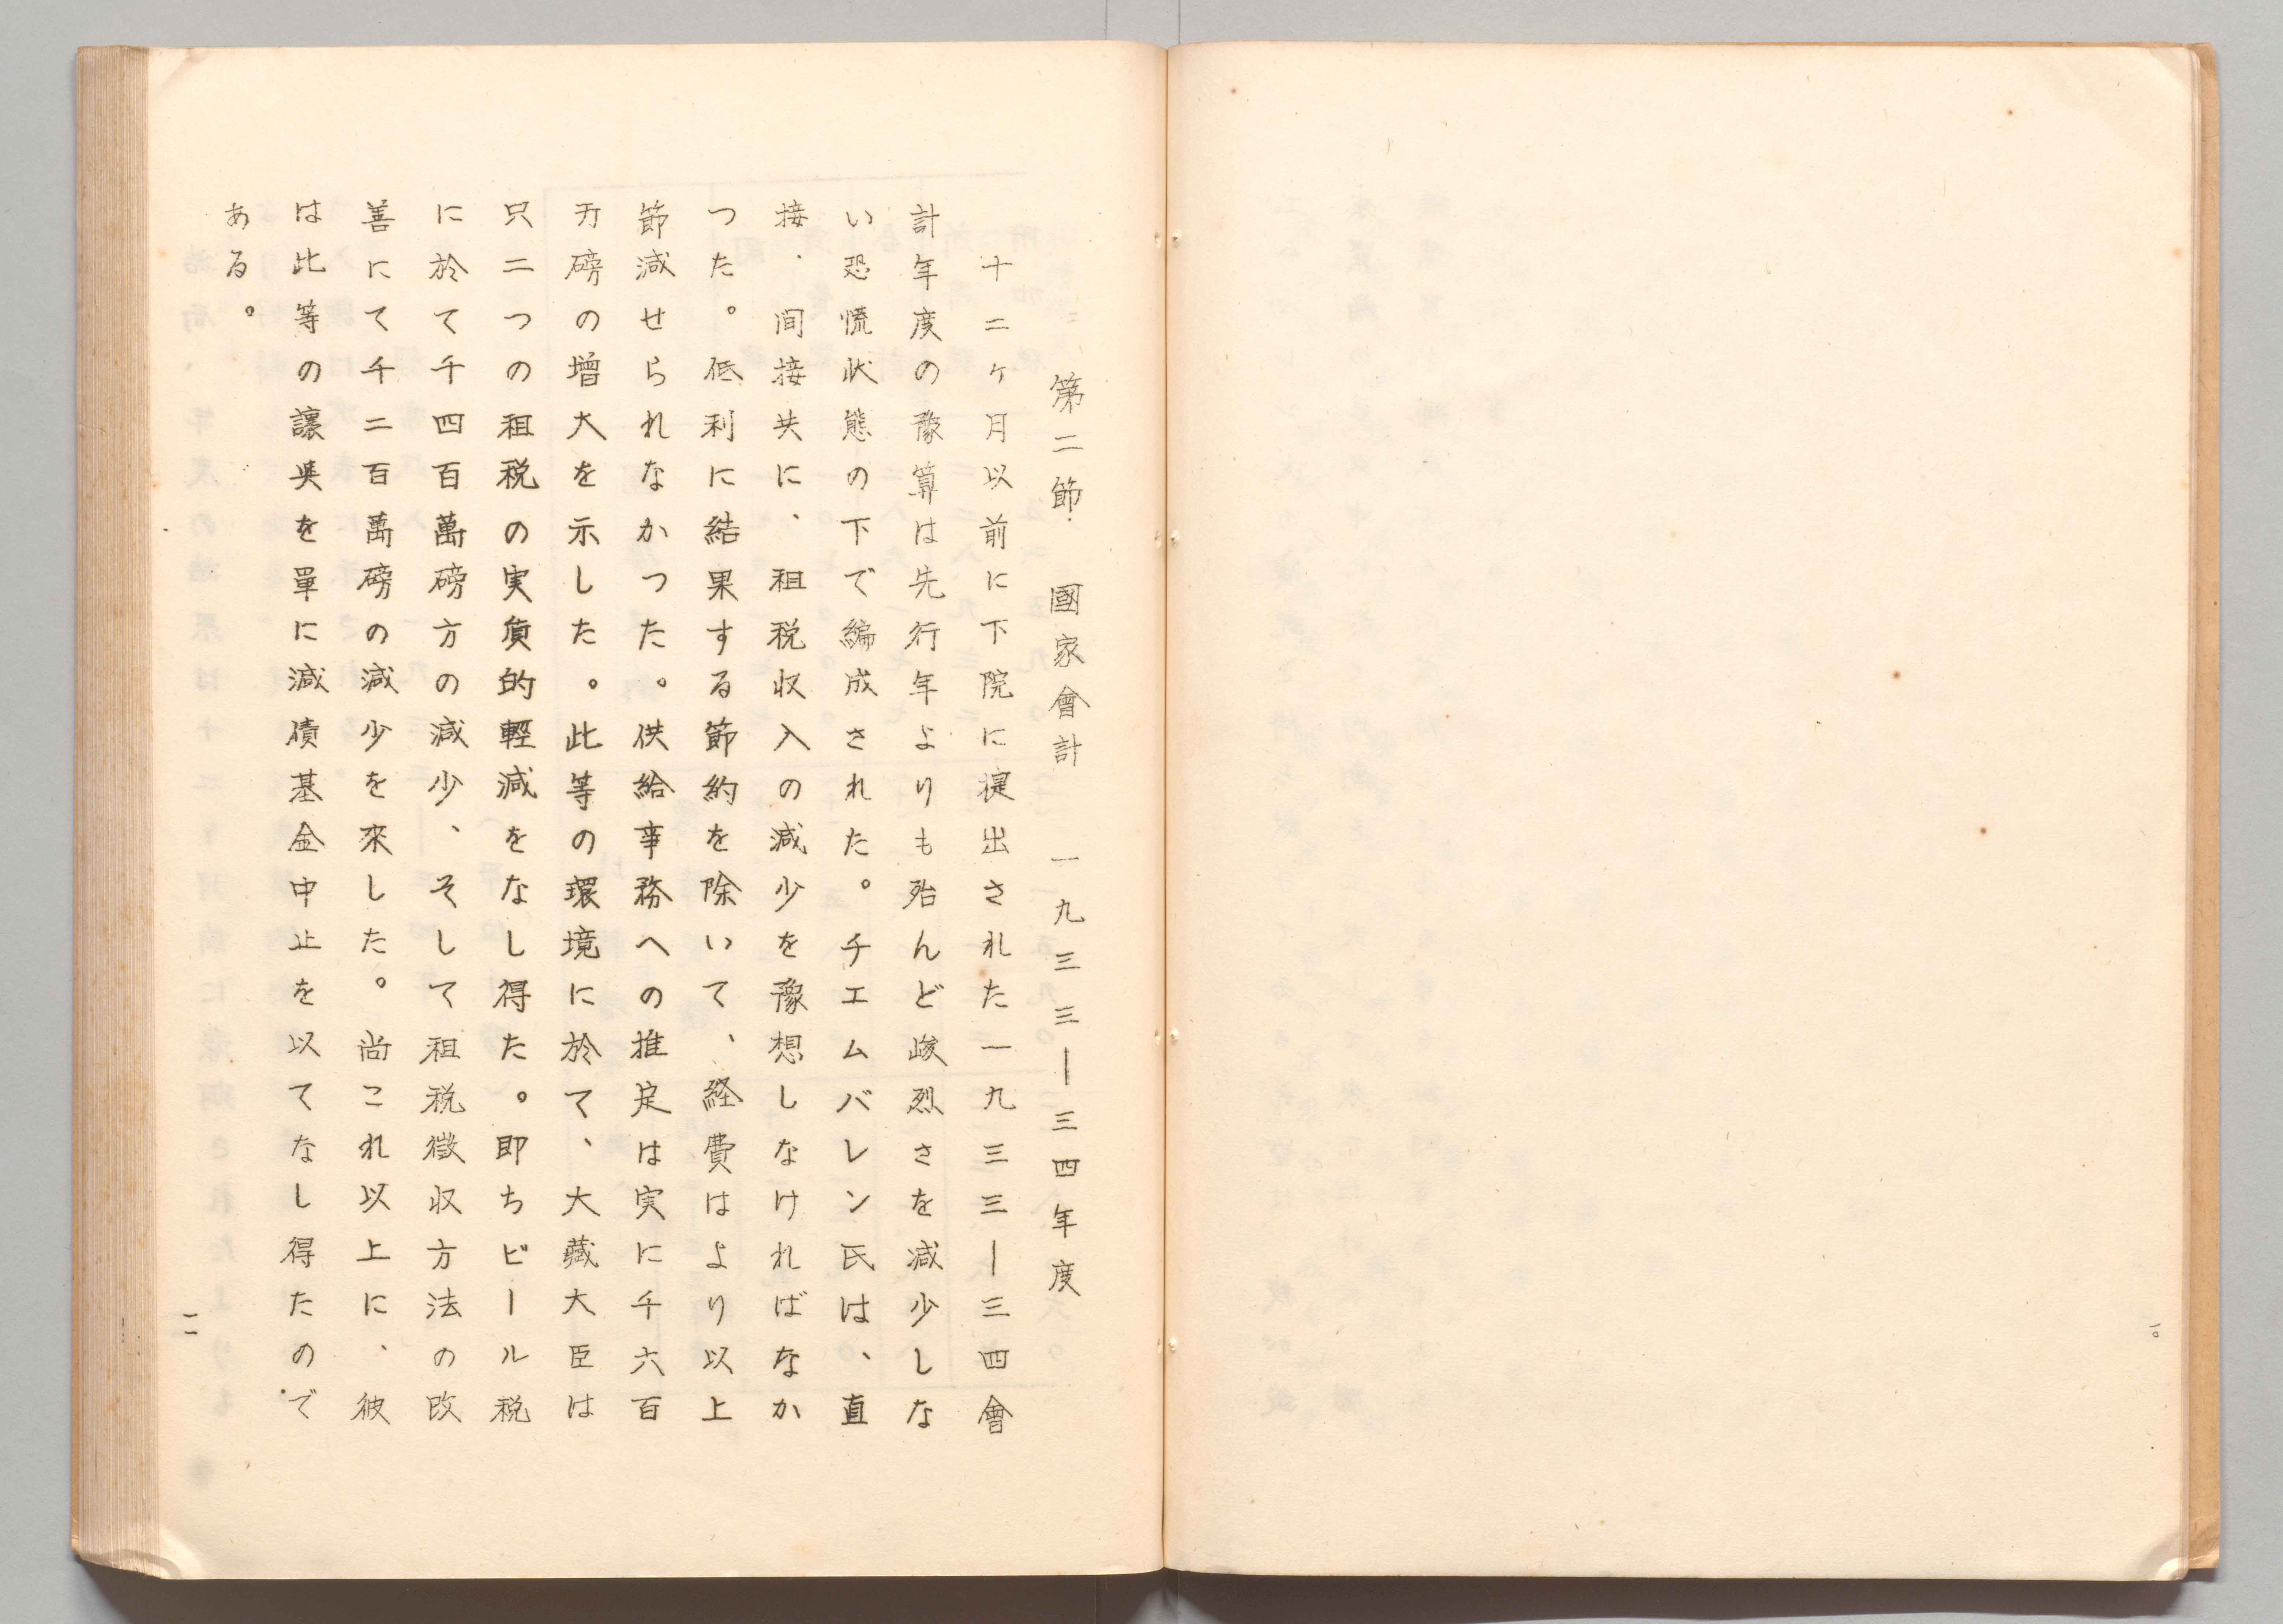 一〇
第二節　國家會計　一九三三—三四年度
十二ヶ月以前に下院に提出された一九三三—三四會
計年度の豫算は先行年よりも殆んど峻烈さを減少しな
い恐慌状態の下で編成された。チエムバレン氏は、直
接、間接共に、租税収入の減少を豫想しなければなか
つた。低利に結果する節約を除いて、経費はより以上
節減せられなかつた。供給事務への推定は実に千六百
万磅の増大を示した。此等の環境に於て、大藏大臣は
只二つの租税の実質的輕減をなし得た。即ちビール税
に於て千四百萬磅方の減少、そして租税徴収方法の改
善にて千二百萬磅の減少を來した。尚これ以上に、彼
は此等の讓與を單に減債基金中止を以てなし得たので
ある。
一一